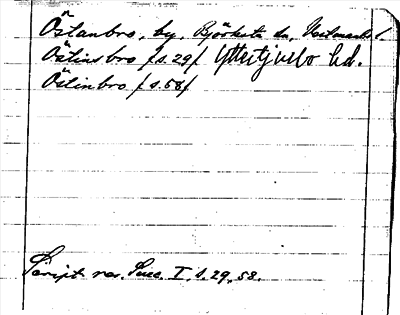 Östanbro, by, Björksta sn, Västmanl.
Östinsbro /s.29/ Yttertjurbo hd.
Östinbro /s.58/
Script. rer. Suec. I, s. 29, 58.